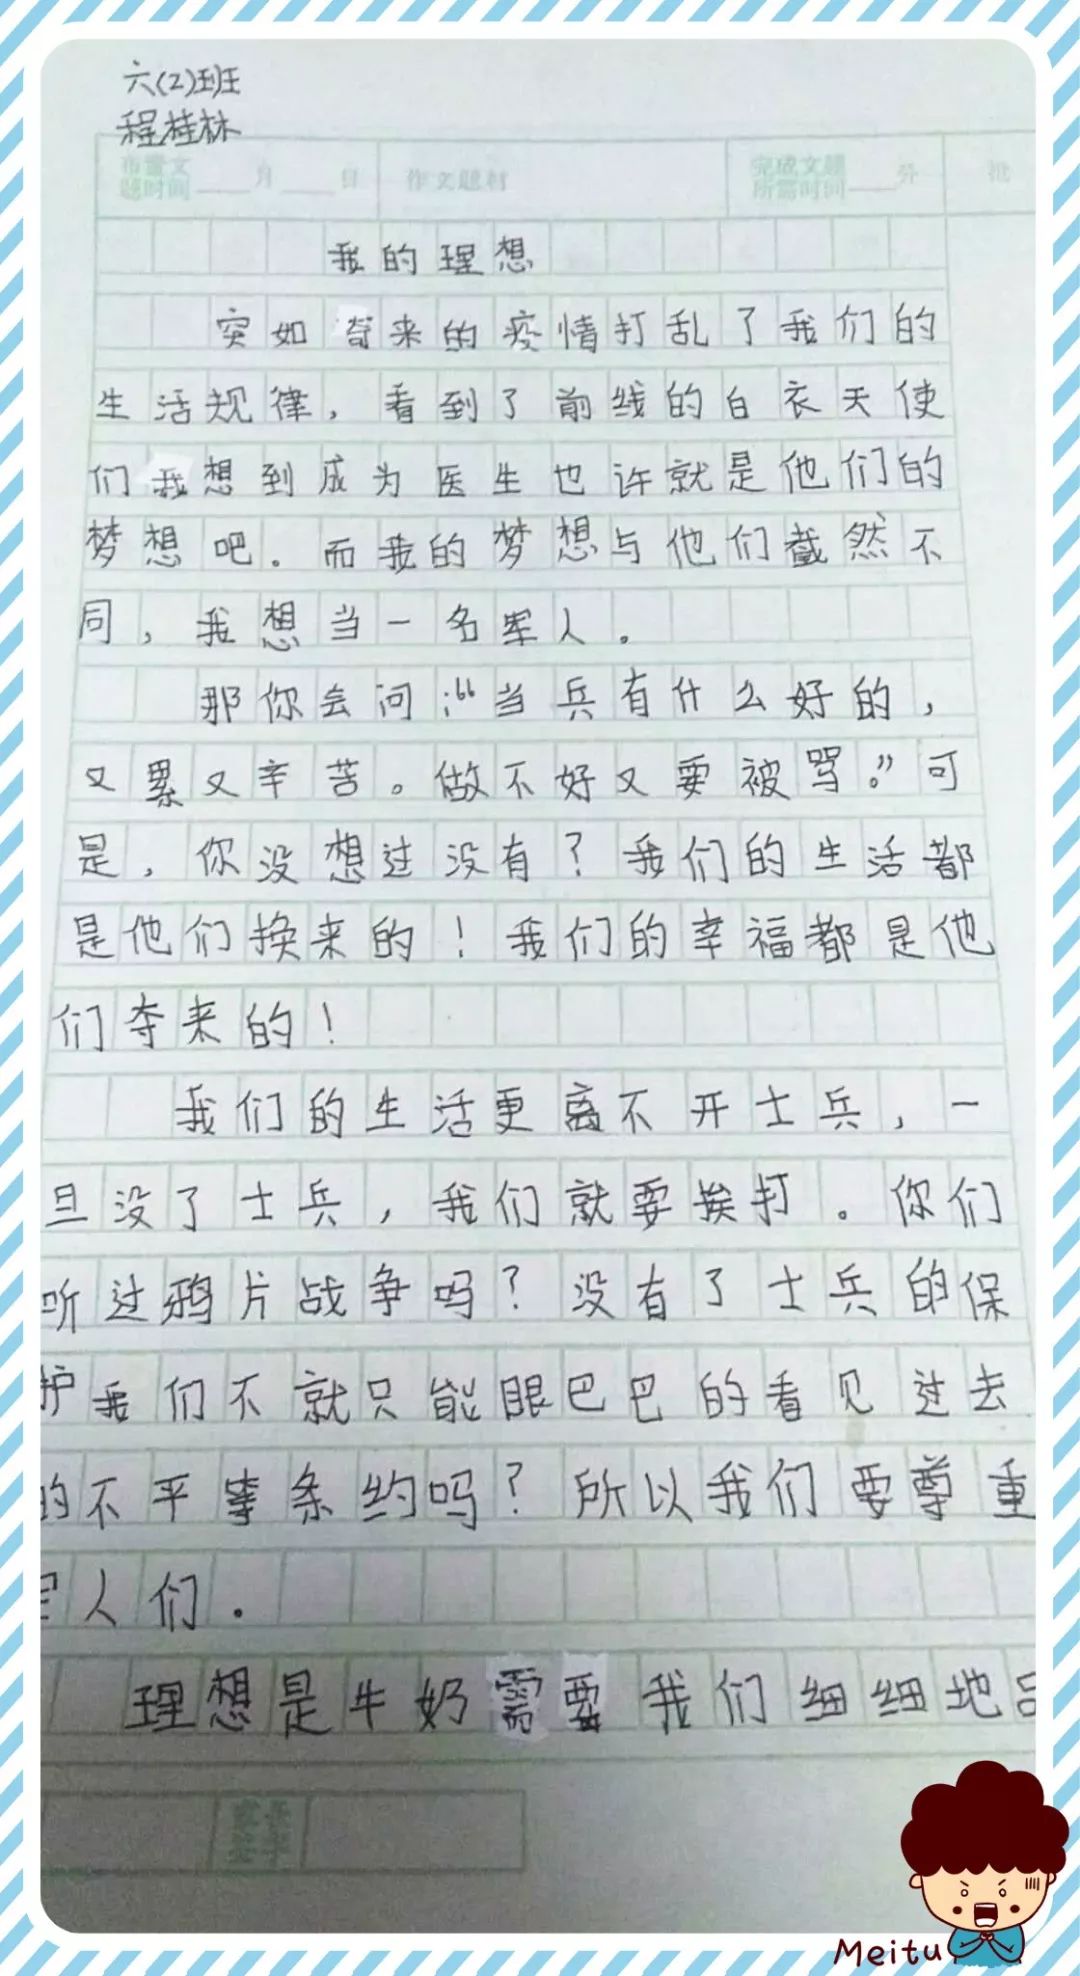 六(2)班
程桂林
布置文题时间____月____日 作文题材 完成文题所需时间____分 批
我的理想
突如奇来的疫情打乱了我们的
生活规律，看到了前线的白衣天使
们我想到成为医生也许就是他们的
梦想吧。而我的梦想与他们截然不
同，我想当一名军人。
那你会问：“当兵有什么好的，
又累又辛苦。做不好又要被骂。”可
是，你没想过没有？我们的生活都
是他们换来的！我们的幸福都是他
们夺来的！
我们的生活更离不开士兵，一
旦没了士兵，我们就要挨打。你们
听过鸦片战争吗？没有了士兵的保
护我们不就只能眼巴巴的看见过去
的不平等条约吗？所以我们要尊重
军人们。
理想是牛奶需要我们细细地品
Meitu